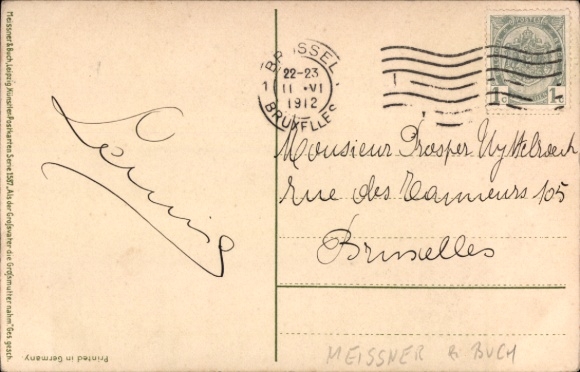 Meissner & Buch, Leipzig, Künstler-Postkarten Serie 1587, "Als der Großvater die Großmutter nahm" Ges. gesch.
Printed in Germany
BRUSSEL
22-23
11 ·VI
1912
BRUXELLES
1c
1c
Monsieur Prosper Uyttebroeck
rue des Tanneurs 105
Bruxelles
MEISSNER & BUCH